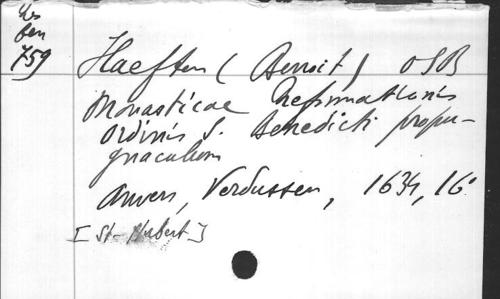 Res
ben
759
Haeften (Benoit) OSB
Monasticae Reformationis
Ordinis S. Benedicti propu-
gnaculum
Anvers, Verdussen, 1634, 16°
[St-Hubert]